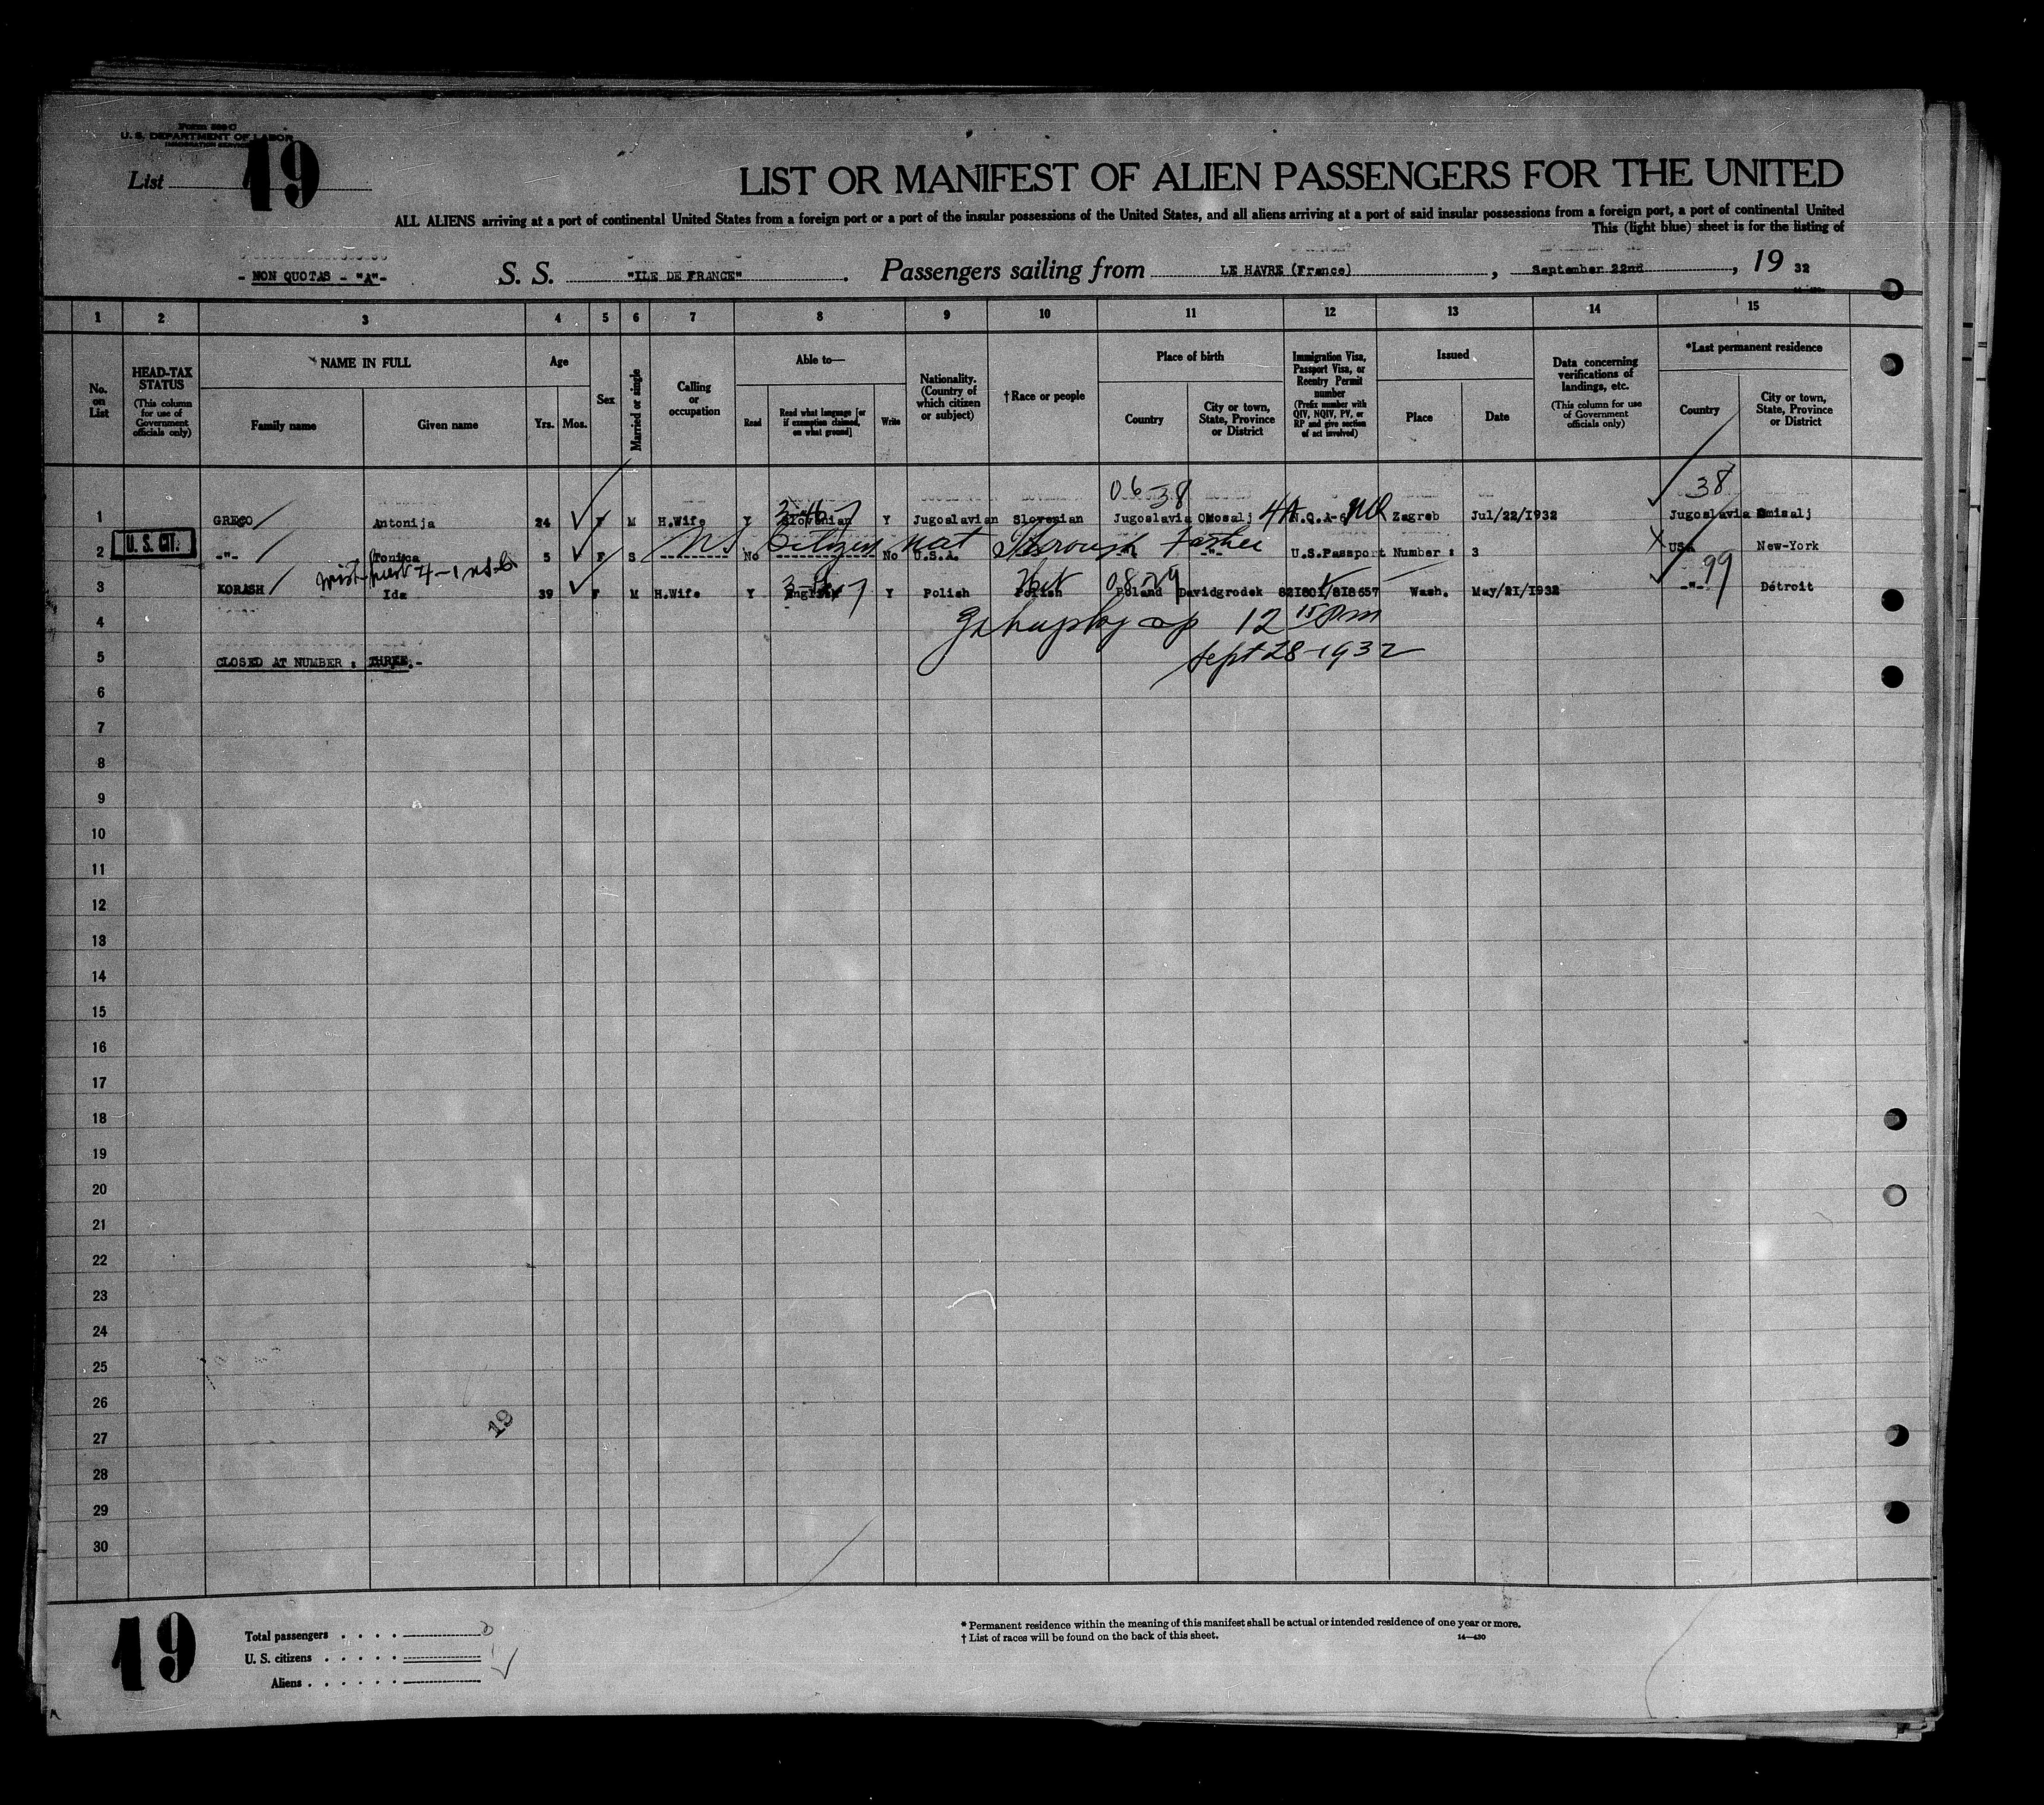 Form 500 C
U. S. DEPARTMENT OF LABOR
IMMIGRATION SERVICE
List 19
LIST OR MANIFEST OF ALIEN PASSENGERS FOR THE UNITED
ALL ALIENS arriving at a port of continental United States from a foreign port or a port of the insular possessions of the United States, and all aliens arriving at a port of said insular possessions from a foreign port, a port of continental United
This (light blue) sheet is for the listing of
- NON QUOTAS - "A"-
S. S. "ILE DE FRANCE". Passengers sailing from LE HAVRE (France), September 22nd, 19 32
1 2 3 4 5 6 7 8 9 10 11 12 13 14 15
No. on List
HEAD-TAX STATUS (This column for use of Government officials only)
NAME IN FULL
Family name
Given name
Age
Yrs. Mos.
Sex
Married or single
Calling or occupation
Able to—
Read
Read what language [or if exemption claimed, on what ground]
Write
Nationality. (Country of which citizen or subject)
†Race or people
Place of birth
Country
City or town, State, Province or District
Immigration Visa, Passport Visa, or Reentry Permit number (Prefix number with QIV, NQIV, PV, or RP and give section of act involved)
Issued
Place
Date
Data concerning verifications of landings, etc. (This column for use of Government officials only)
*Last permanent residence
Country
City or town, State, Province or District
06-38
38
1 GREGO Antonija 24 F M H.Wife Y Slovenian Y Jugoslavian Slovenian Jugoslavia Omosalj 4A N.Q.A-6 NQ Zagreb Jul/22/1932 Jugoslavia Omisalj
US Citizen nat through Father
2 U. S. CIT. -"- Tonica 5 F S No No U.S.A. -"- -"- U.S.Passport Number : 3 USA New-York
99
3 KORASH Ida 39 F M H.Wife Y English Y Polish Polish Poland Davidgrodek 821801/818657 Wash. May/21/1932 -"- Détroit
4 12 15 pm
Sept 28-1932
5 CLOSED AT NUMBER : THREE.-
6
7
8
9
10
11
12
13
14
15
16
17
18
19
20
21
22
23
24
25
26
27
28
29
30
19
19
Total passengers . . . .
U. S. citizens . . . . .
Aliens . . . . . .
* Permanent residence within the meaning of this manifest shall be actual or intended residence of one year or more.
† List of races will be found on the back of this sheet.
14—430